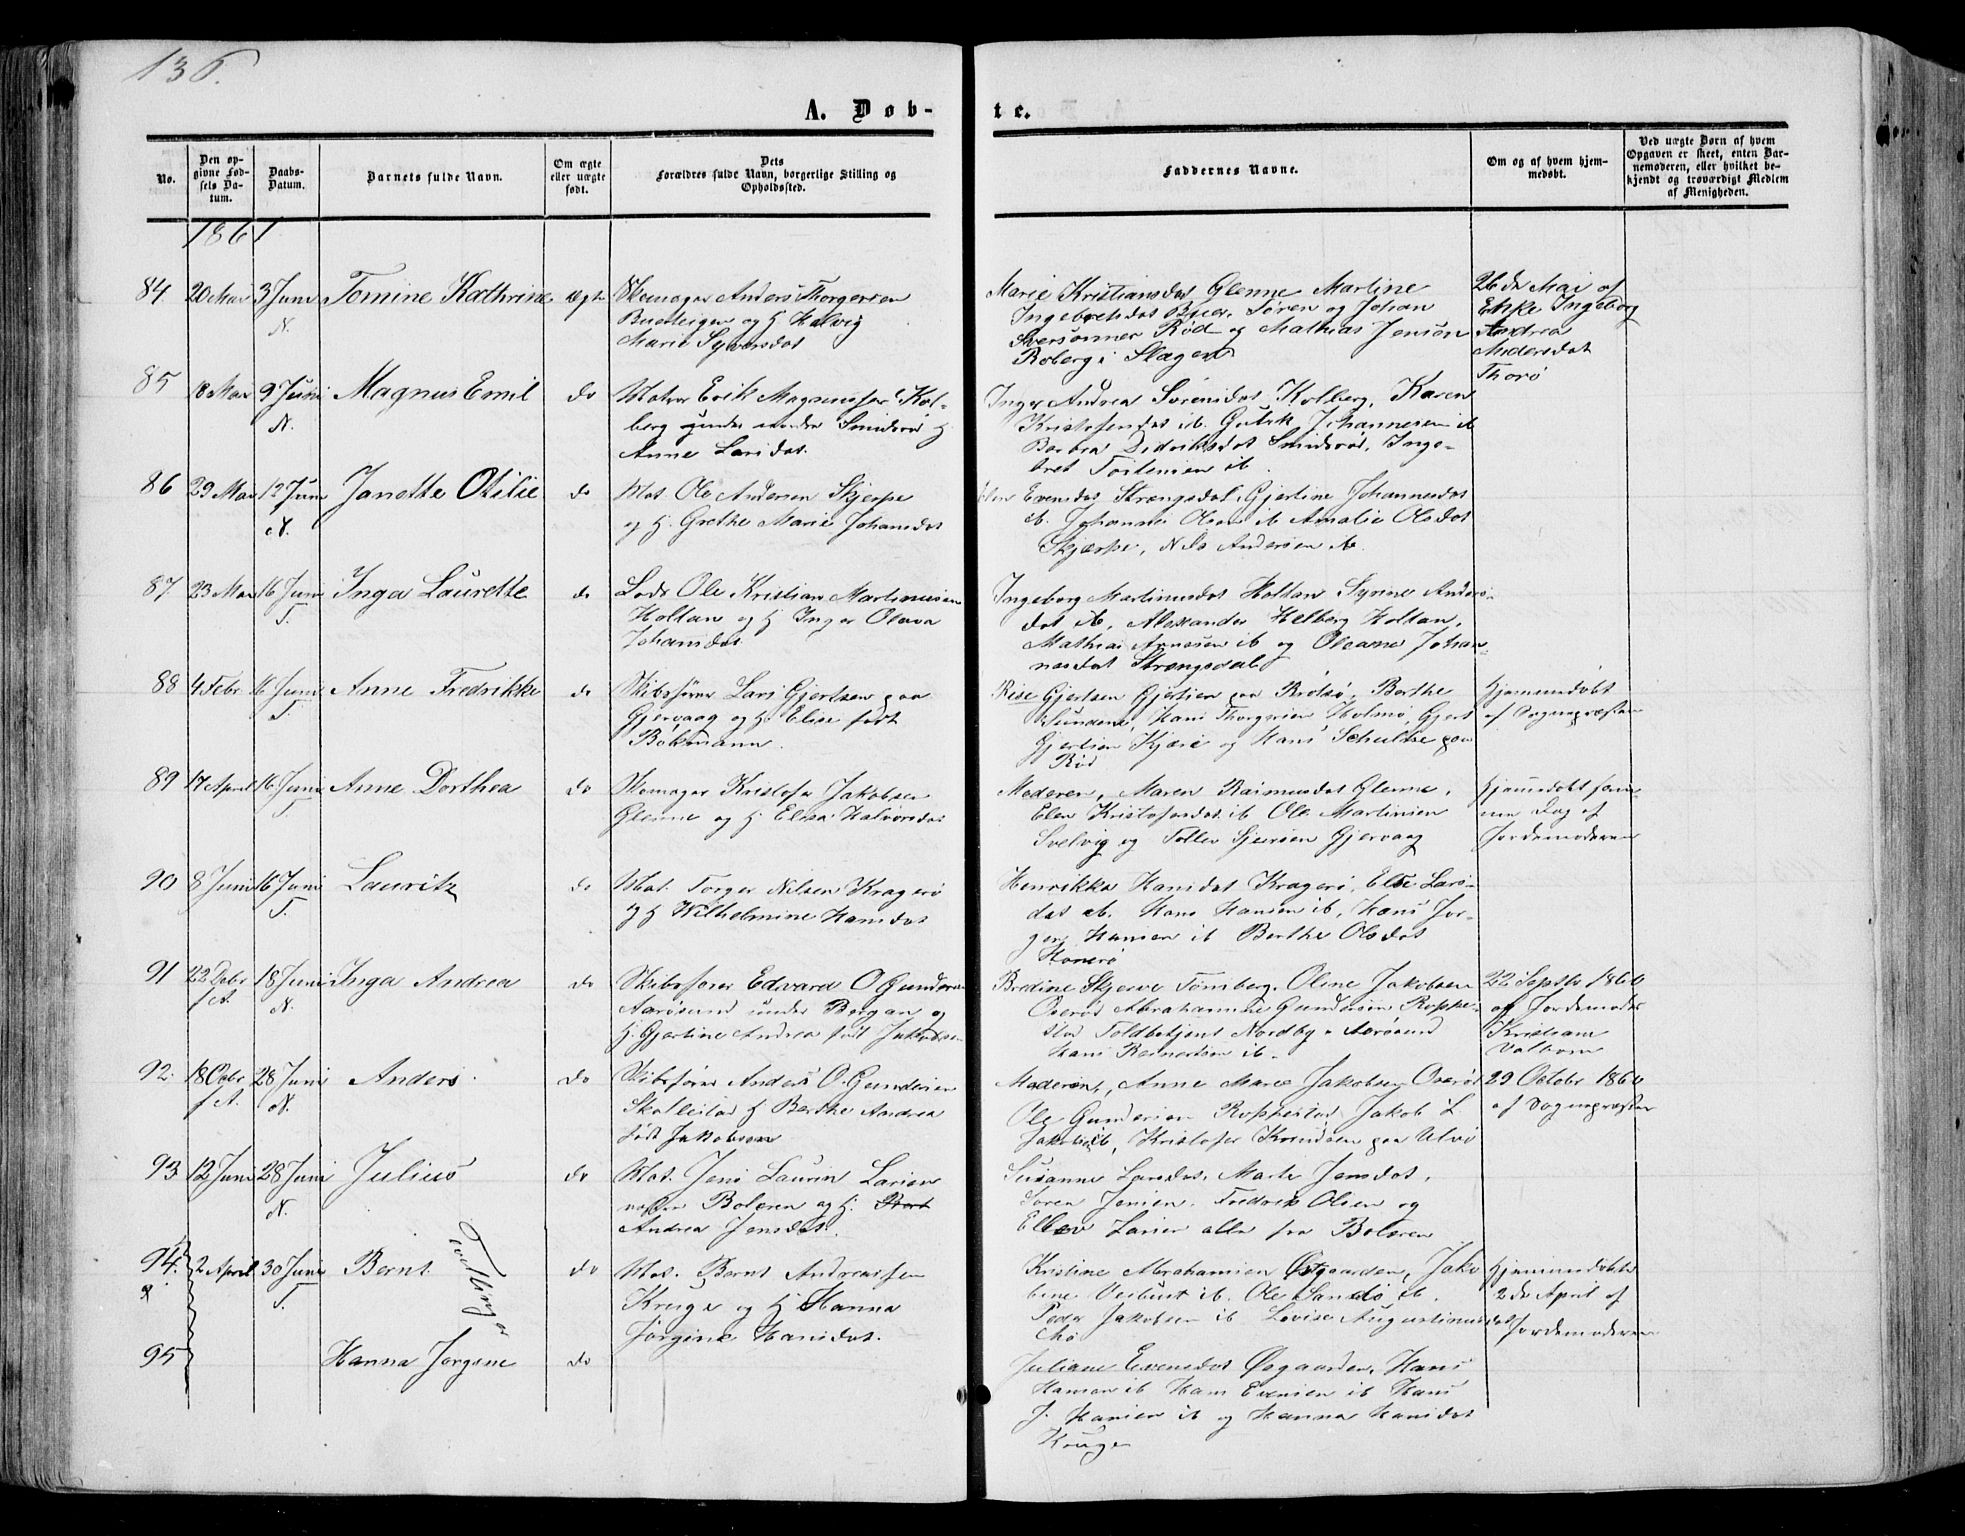 136.
A. Døb-
te.
No.
Den op-
givne Fød-
sels Da-
tum.
Daabs-
Datum.
Barnets fulde Navn.
Om ægte
eller uægte
født.
Dets
Forældres fulde Navn, borgerlige Stilling og
Opholdssted.
Faddernes Navne.
Om og af hvem hjem-
medøbt.
Ved uægte Børn af hvem
Opgaven er skeet, enten Bar-
nemoderen, eller hvilket be-
kjendt og troværdigt Medlem
af Menigheden.
1861
84 20 Mai 3 Juni Tomine Kathrine ægte Skomager Anders Thorgersen
N.
og H Halvig
Marie Syversdat
Marie Kristiansdat Glenne Martine
Ingebretsdat Bjuer, Søren og Johan
Iversønner Rød og Mathias Jensøn
Roberg i Slagen
26de Mai af
Enke Ingeborg
Andrea
Andersdat
Thorø
85 8 Mai 9 Juni Magnus Emil do Matros Erik Magnussen Kol-
N.
berg under Smidsrød H
Anne Larsdat.
Inger Andrea Sørensdat Kolberg, Karen
Kristofersdat ib. Gulik Johannesen ib
Barbra Didriksdat Smidsrød, Inge-
bret Torstensen ib.
86 29 Mai 12 Juni Janette Otilie do Mat. Ole Andersen Skjerpe
N.
og H. Grethe Marie Johansdat
Elen Evensdat Strengsdal, Gjertine Johannesdat
ib. Johannes Olsen ib Amalie Olsdat
Skjærpe, Nils Andersen ib.
87 23 Mai 16 Juni Inga Laurette do Lods Ole Kristian Martinusen
T.
Holtan og H Inger Olava
Johansdat
Ingeborg Martinusdat Holtan Synne Anders-
dat ib, Alexander Helberg Holtan,
Mathias Arnesen ib og Oleane Johan-
nesdat Strengsdal
88 4 Febr 16 Juni Anne Fredrikke do Skibsfører Lars Gjertsen paa
T.
Gjervaag og H. Elise født
Bøkmann.
Rise Gjertsen Gjertsen paa Brøtsø, Berthe
Sundene, Hans Thorgersen Holmø, Gjert
Gjertsen Kjære og Hans Schultze paa
Rød
Hjemmedøbt
af Sognepræsten
89 17 April 16 Juni Anne Dorthea do Skomager Kristofer Jakobsen
T.
Glenne og H. Elisa Halvorsdat
Moderen, Maren Rasmusdat Glenne,
Elen Kristofersdat ib Ole Martinsen
Svelvig og Tollev Sjursen Gjervaag
Hjemmedøbt sam-
me Dag af
Jordemoderen
90 8 Juni 16 Juni Lauritz do Mat. Torger Nilsen Kragerø
T.
og H Wilhelmine Hansdat
Henrikke Hansdat Kragerø, Else Lars-
dat ib. Hans Hansen ib, Hans Jør-
gen Hansen ib Berthe Olsdat
91 22 18 Juni Inga Andrea do Skibsfører Edvard O Gundersen
f A. N.
Aarøsund under Bergan og
H. Gjertine Andrea født Jakobsen
Bredine Skjerve Tønsberg. Oline Jakobsen
Oserød Abrahamine Gundersen Roppe-
stad Toldbetjent Nordby i Aarøsund
Hans Reinertsen ib.
22 Septbr 1860
af Jordemoder
Kristiane
Valborn
92. 18 Octbr 28 Juni Anders do Skibsfører Anders O. Gundersen
f A. N.
Skallestad H Berthe Andrea
født Jakobsen
Moderen, Anne Marie Jakobsen Oserød
Ole Gundersen Roppestad, Jakob L
Jakobsen ib, Kristofer Knudsen paa Ulvø
29 Octobr 1860
af Sognepræsten
93 12 Juni 28 Juni Julius do Mat. Jens Laurin Larsen
N.
Bolæren og H.
Andrea Jensdat.
Susanne Larsdat, Marte Jensdat,
Søren Jensen, Fredrik Olsen og
Ellev Larsen alle fra Bolæren
94. 2 April 30 Juni Bernt do Mat. Bernt Andreassen
T.
Tvillinger
Kruge og H Hanna
Jørgine Hansdat.
Kristine Abrahamsen Østgaarden, Jako
bine ib. Ole Sandø ib.
Peder Jakobsen ib Lovise Augustinusdat
Hjemmedøbte
2de April af
Jordemoderen
95 Hanna Jørgine do
Juliane Evensdat Øsgaarden, Hans
Hansen ib Hans Evensen ib Hans
J. Hansen ib og Hanna Hansdat
Kruge